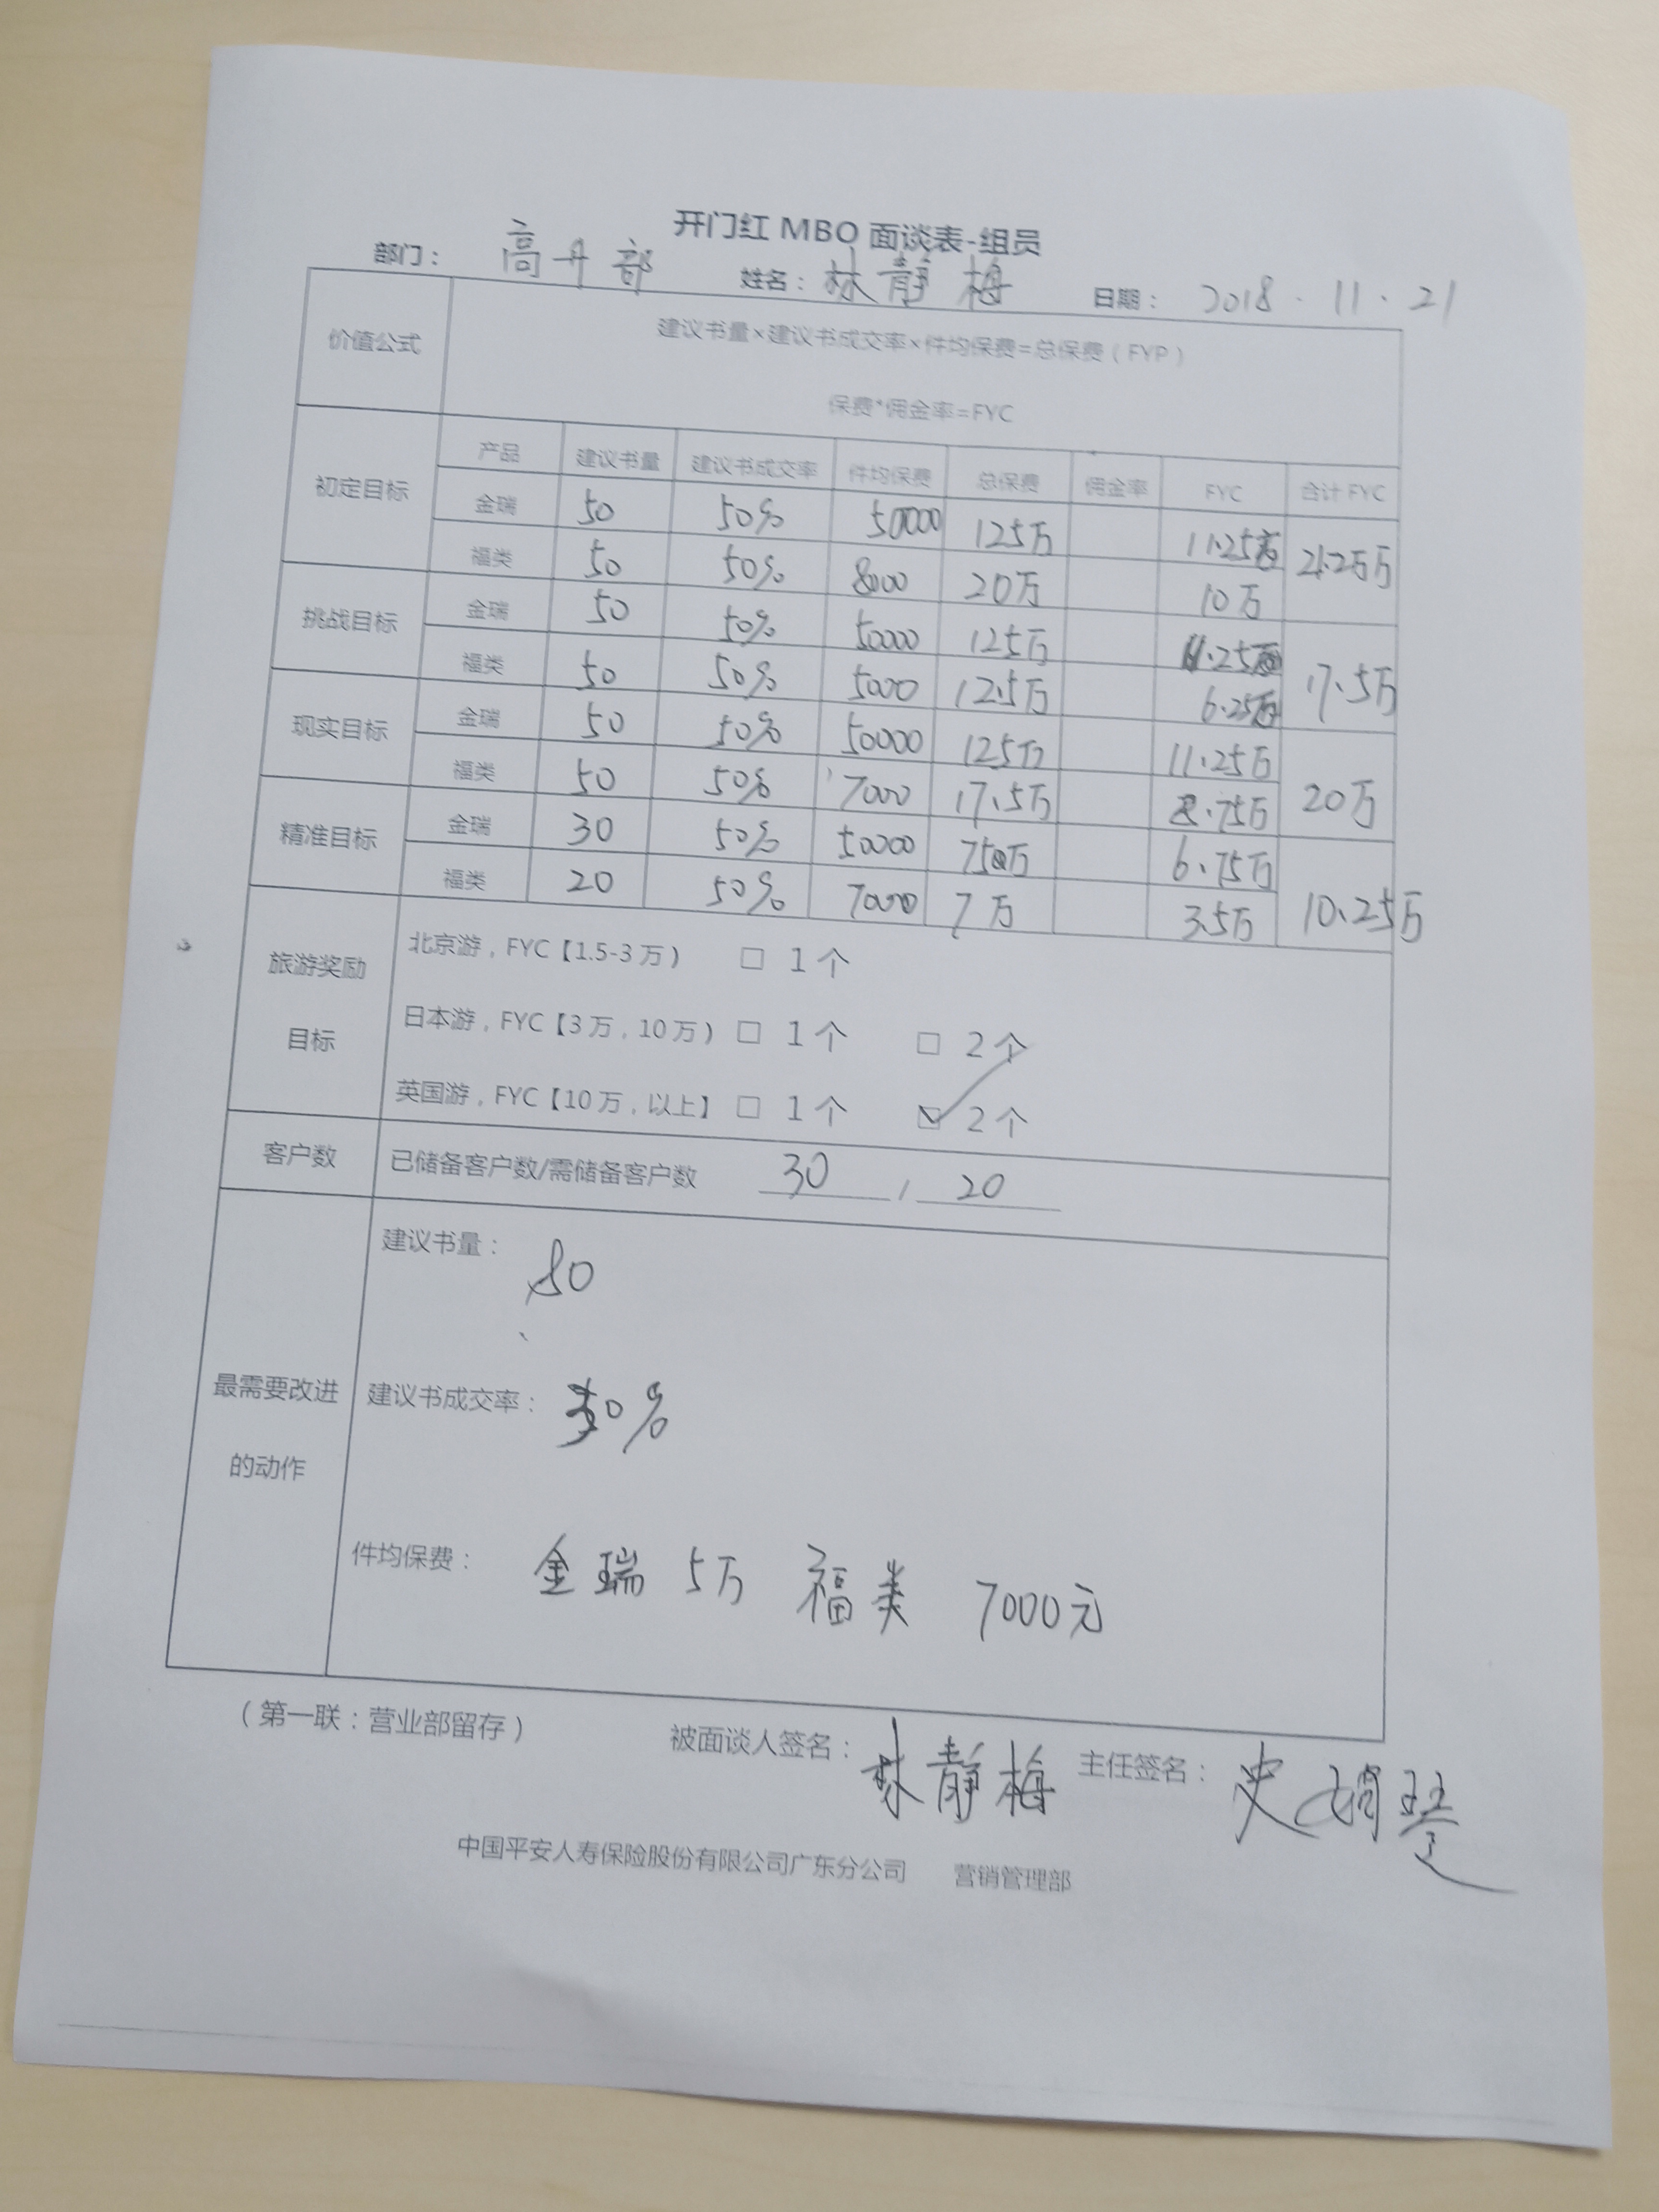 开门红 MBO 面谈表-组员
部门： 高升部 姓名： 林静梅 日期： 2018.11.21
价值公式
建议书量×建议书成交率×件均保费=总保费（FYP）
保费*佣金率=FYC
初定目标
产品 建议书量 建议书成交率 件均保费 总保费 佣金率 FYC 合计 FYC
金瑞 50 50% 50000 125万 11.25万 21.25万
福类 50 50% 8000 20万 10万
挑战目标
金瑞 50 50% 50000 125万 11.25万 17.5万
福类 50 50% 5000 12.5万 6.25万
现实目标
金瑞 50 50% 50000 125万 11.25万 20万
福类 50 50% 7000 17.5万 8.75万
精准目标
金瑞 30 50% 50000 75万 6.75万 10.25万
福类 20 50% 7000 7万 3.5万
旅游奖励
目标
北京游，FYC【1.5-3 万） □ 1 个
日本游，FYC【3 万，10 万） □ 1 个 □ 2 个
英国游，FYC【10 万，以上】 □ 1 个 ☑ 2 个
客户数 已储备客户数/需储备客户数 30 / 20
最需要改进
的动作
建议书量： 50
建议书成交率： 30%
件均保费： 金瑞 5万 福类 7000元
（第一联：营业部留存） 被面谈人签名： 林静梅 主任签名： 史
中国平安人寿保险股份有限公司广东分公司 营销管理部